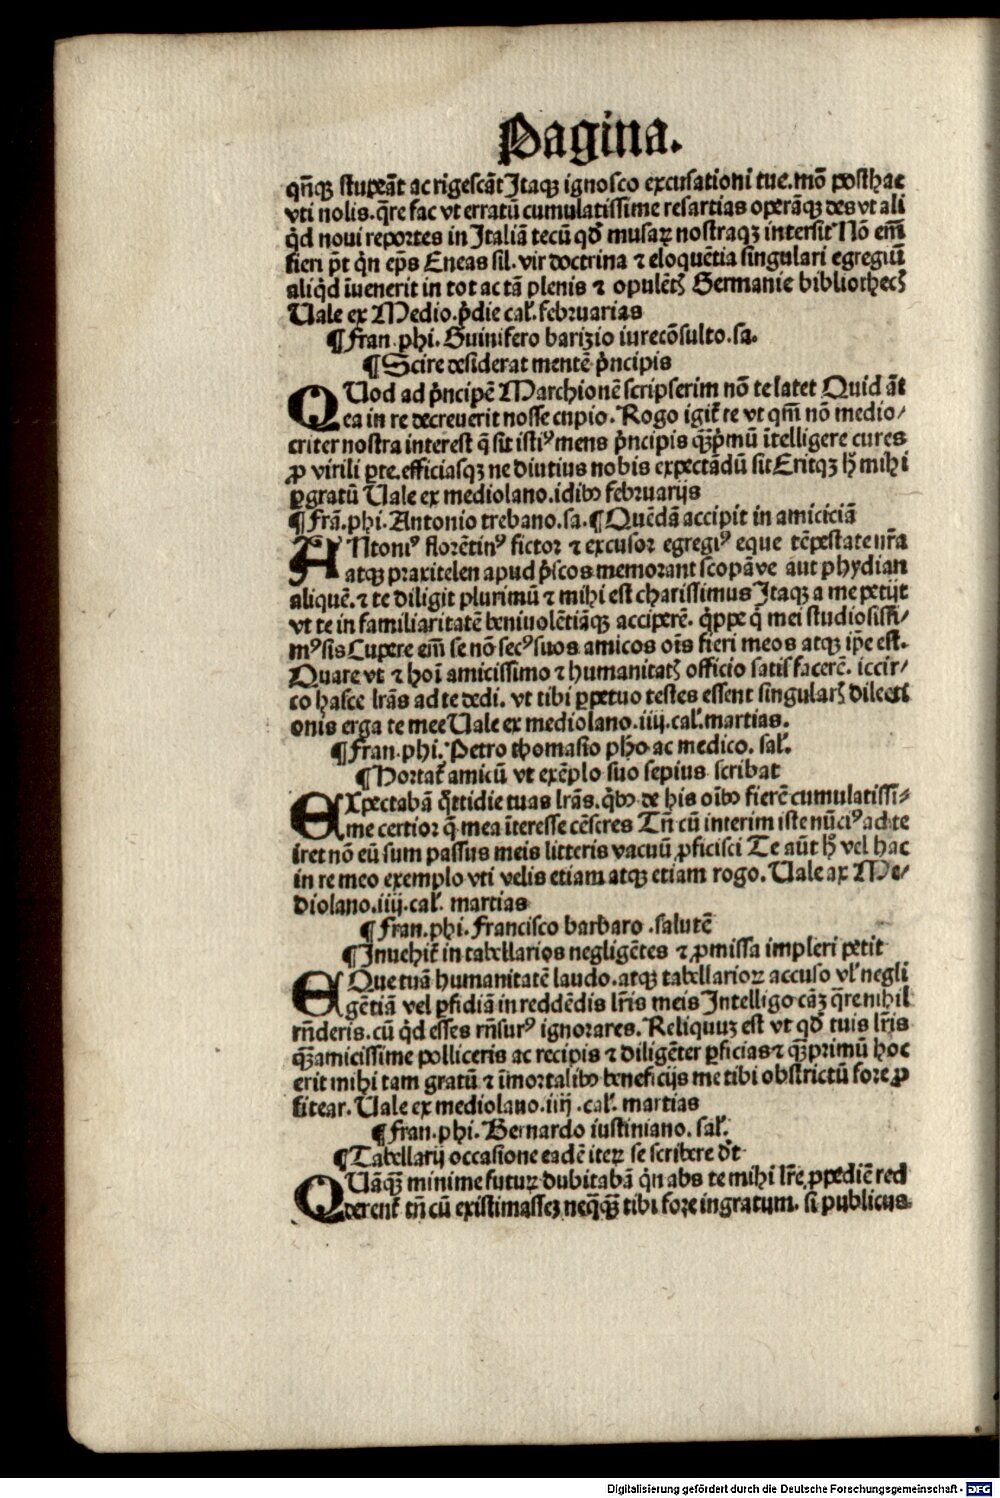 Pagina.
qñqꝫ stupeāt ac rigescāt Itaqꝫ ignosco excusationi tue. mō posthac
vti nolis. q̄re fac vt erratū cumulatissime resartias operāqꝫ des vt ali
q̇d noui reportes in Italiā tecū qđ musaꝝ nostraqꝫ intersit Nō em̄
fieri p̄t q̇n ep̄s Eneas sil. vir doctrina ⁊ eloquētia singulari egregiū
aliq̇d iuenerit in tot ac tā plenis ⁊ opulētꝭ Germanie bibliothecꝭ
Uale ex Medio. p̓die cal'. februarias
¶ Fran. phi. Guinifero barizio iurecōsulto. sa.
¶ Scire desiderat mentē p̓ncipis
QUod ad p̓ncipē Marchionē scripserim nō te latet Quid āt
ea in re decreuerit nosse cupio. Rogo igit̄ te vt qm̄ nō medio/
criter nostra interest q̄ sit isti⁹ mens p̓ncipis qꝫp̓mū ītelligere cures
ꝓ virili ꝑte. efficiasqꝫ ne diutius nobis expectādū sit Eritqꝫ h̓ mihi
ꝑgratū Uale ex mediolano. idibꝰ februarijs
¶ Frā. phi. Antonio trebano. sa. ¶ Quēdā accipit in amiciciā
ANtoni⁹ florētin⁹ fictor ⁊ excusor egregi⁹ eque tēpestate nr̄a
atqꝫ praxitelen apud p̓scos memorant scopāve aut phydian
aliquē. ⁊ te diligit plurimū ⁊ mihi est charissimus Itaqꝫ a me petijt
vt te in familiaritatē beniuolētiāqꝫ acciperē. q̇ppe q̇ mei studiosissi/
m⁹ sis Cupere em̄ se nō sec⁹ suos amicos oīs fieri meos atqꝫ ip̄e est.
Quare vt ⁊ hoī amicissimo ⁊ humanitatꝭ officio satisfacerē. iccir/
co hasce lr̄as ad te dedi. vt tibi ꝑpetuo testes essent singularꝭ dilecti
onis erga te mee Uale ex mediolano. iiij. cal'. martias.
¶ Fran. phi. Petro thomasio pho ac medico. sal'.
¶ Hortat̄ amicū vt exēplo suo sepius scribat
EXpectabā q̇ttidie tuas lr̄as. q̇bꝰ de his oībꝰ fierē cumulatissi/
me certior q̄ mea īteresse cēseres Tn̄ cū interim iste nūci⁹ ad te
iret nō eū sum passus meis litteris vacuū ꝓficisci Te aūt h̓ vel hac
in re meo exemplo vti velis etiam atqꝫ etiam rogo. Uale ax Me/
diolano. iiij. cal'. martias
¶ Fran. phi. Francisco barbaro. salutē
¶ Inuehit̄ in tabellarios negligētes ⁊ ꝓmissa impleri petit
EQue tuā humanitatē laudo. atqꝫ tabellarioꝝ accuso vl' negli
gētiā vel ꝑfidiā in reddēdis lr̄is meis Intelligo cāꝫ q̄re nihil
rn̄deris. cū q̇d esses rn̄sur⁹ ignorares. Reliquuꝫ est vt qđ tuis lr̄is
qꝫamicissime polliceris ac recipis ⁊ diligēter ꝑficias ⁊ qꝫprimū hoc
erit mihi tam gratū ⁊ īmortalibꝰ beneficijs me tibi obstrictū fore ꝓ
fitear. Uale ex mediolano. iiij. cal'. martias
¶ Fran. phi. Bernardo iustiniano. sal'.
¶ Tabellarij occasione eadē iteꝝ se scribere dt̄
QUāqꝫ minime futuꝝ dubitabā q̇n abs te mihi lr̄e ꝓpediē red
derent̄ tn̄ cū existimasseꝫ neq̄qꝫ tibi fore ingratum. si publicus
Digitalisierung gefördert durch die Deutsche Forschungsgemeinschaft - DFG